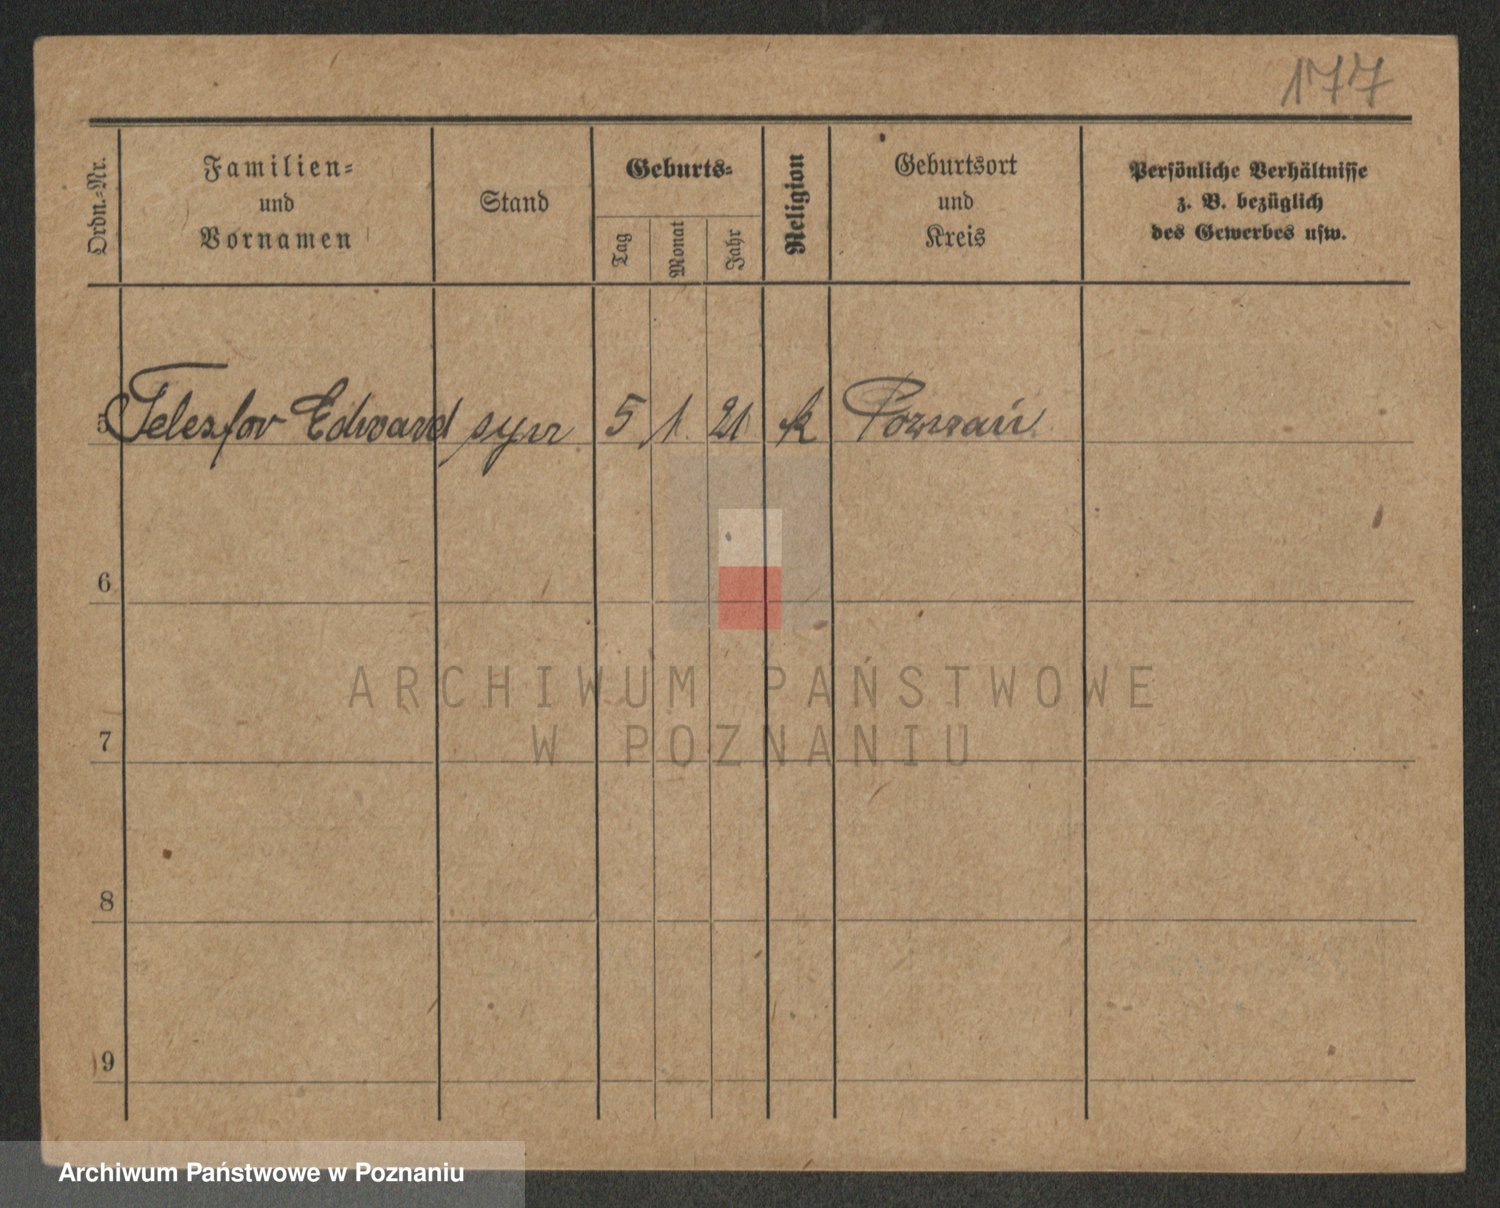 177
Ordn.-Nr.
Familien-
und
Vornamen
Stand
Geburts-
Tag
Monat
Jahr
Religion
Geburtsort
und
Kreis
Persönliche Verhältnisse
z. B. bezüglich
des Gewerbes usw.
5 Telesfor Edward syn 5 1. 21. k Poznań
6
7
8
9
ARCHIWUM PAŃSTWOWE
W POZNANIU
Archiwum Państwowe w Poznaniu